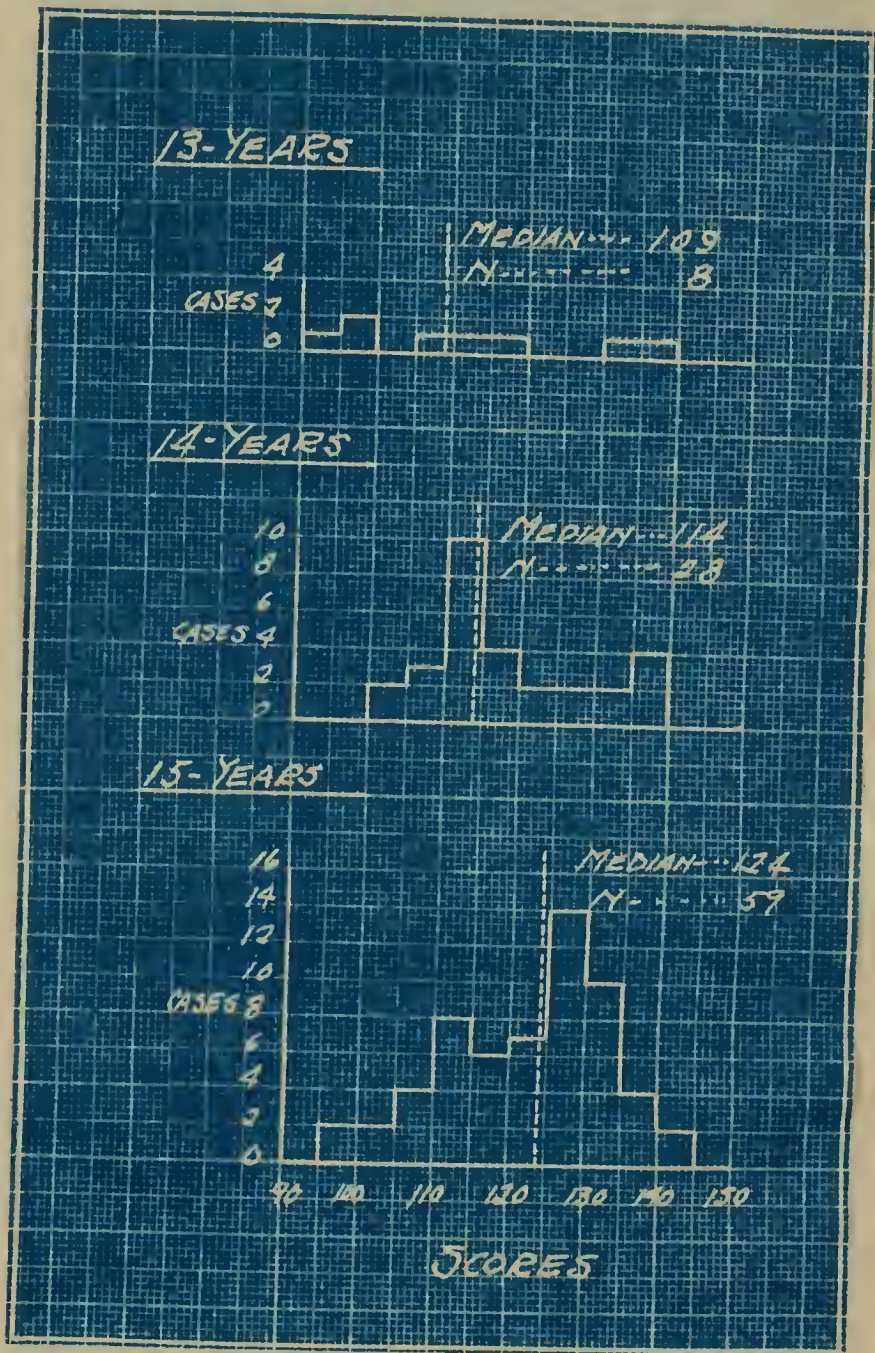 13-YEARS
MEDIAN---- 109
N--------- 8
4
CASES 2
0
14-YEARS
MEDIAN---114
N--------- 28
10
8
6
CASES 4
2
0
15-YEARS
MEDIAN---124
N------- 59
16
14
12
10
CASES 8
6
4
2
0
90 100 110 120 130 140 150
SCORES